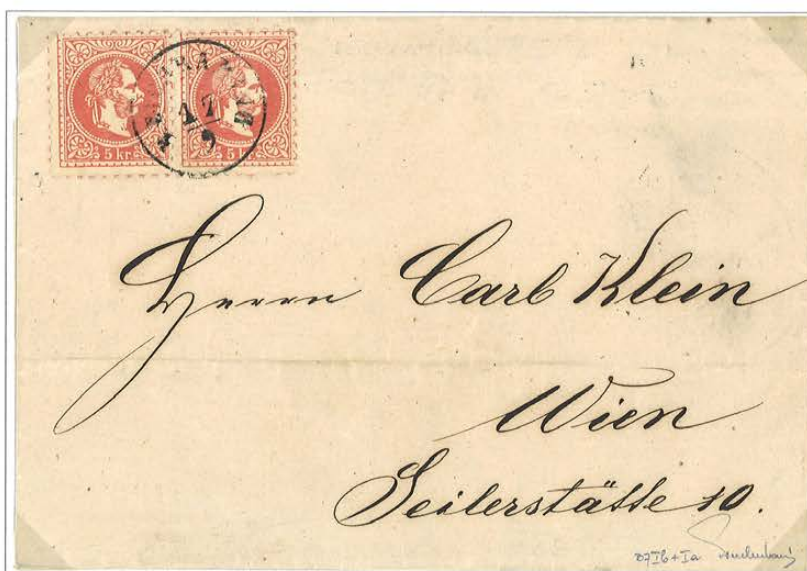 5 kr
5 k
17
9
Herrn Carl Klein
Wien
Seilerstätte 10.